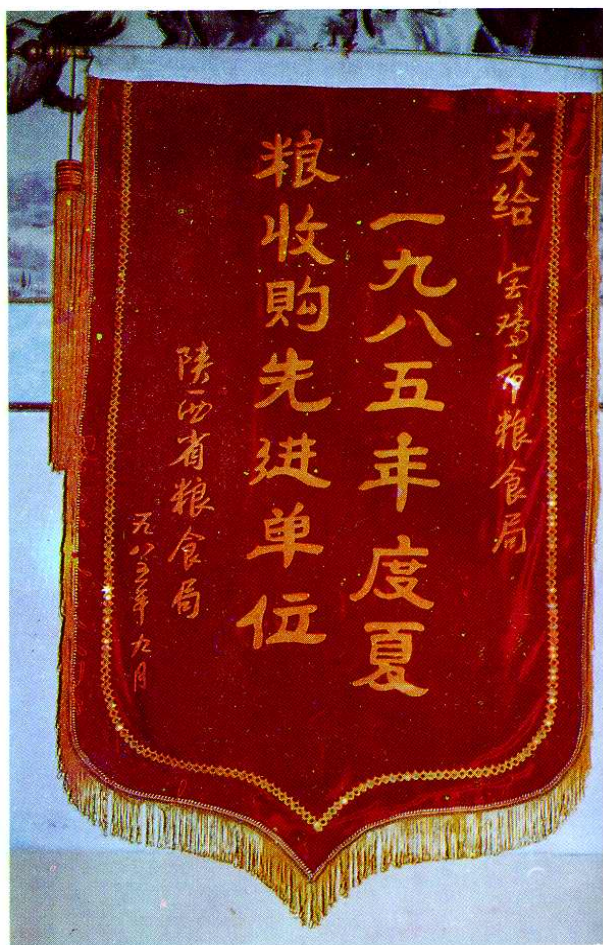 奖给 宝鸡市粮食局
一九八五年度夏
粮收购先进单位
陕西省粮食局
一九八五年九月